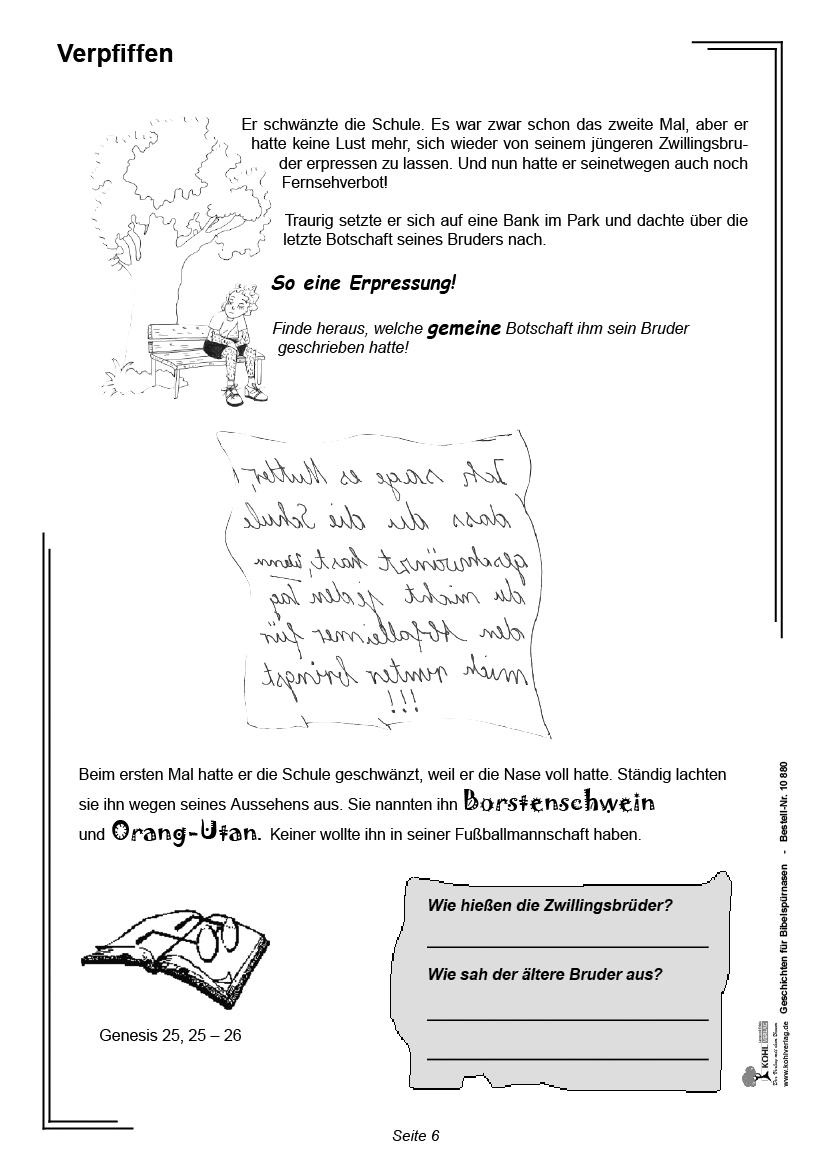 Verpfiffen
Er schwänzte die Schule. Es war zwar schon das zweite Mal, aber er
hatte keine Lust mehr, sich wieder von seinem jüngeren Zwillingsbru-
der erpressen zu lassen. Und nun hatte er seinetwegen auch noch
Fernsehverbot!
Traurig setzte er sich auf eine Bank im Park und dachte über die
letzte Botschaft seines Bruders nach.
So eine Erpressung!
Finde heraus, welche gemeine Botschaft ihm sein Bruder
geschrieben hatte!
Ich sage es Mutter,
dass du die Schule
geschwänzt hast, wenn
du nicht jeden Tag
den Abfalleimer für
mich runter bringst
!!!
Beim ersten Mal hatte er die Schule geschwänzt, weil er die Nase voll hatte. Ständig lachten
sie ihn wegen seines Aussehens aus. Sie nannten ihn Borstenschwein
und Orang-Utan. Keiner wollte ihn in seiner Fußballmannschaft haben.
Genesis 25, 25 – 26
Wie hießen die Zwillingsbrüder?
Wie sah der ältere Bruder aus?
Geschichten für Bibelspürnasen - Bestell-Nr. 10 880
KOHL VERLAG
www.kohlverlag.de
Seite 6